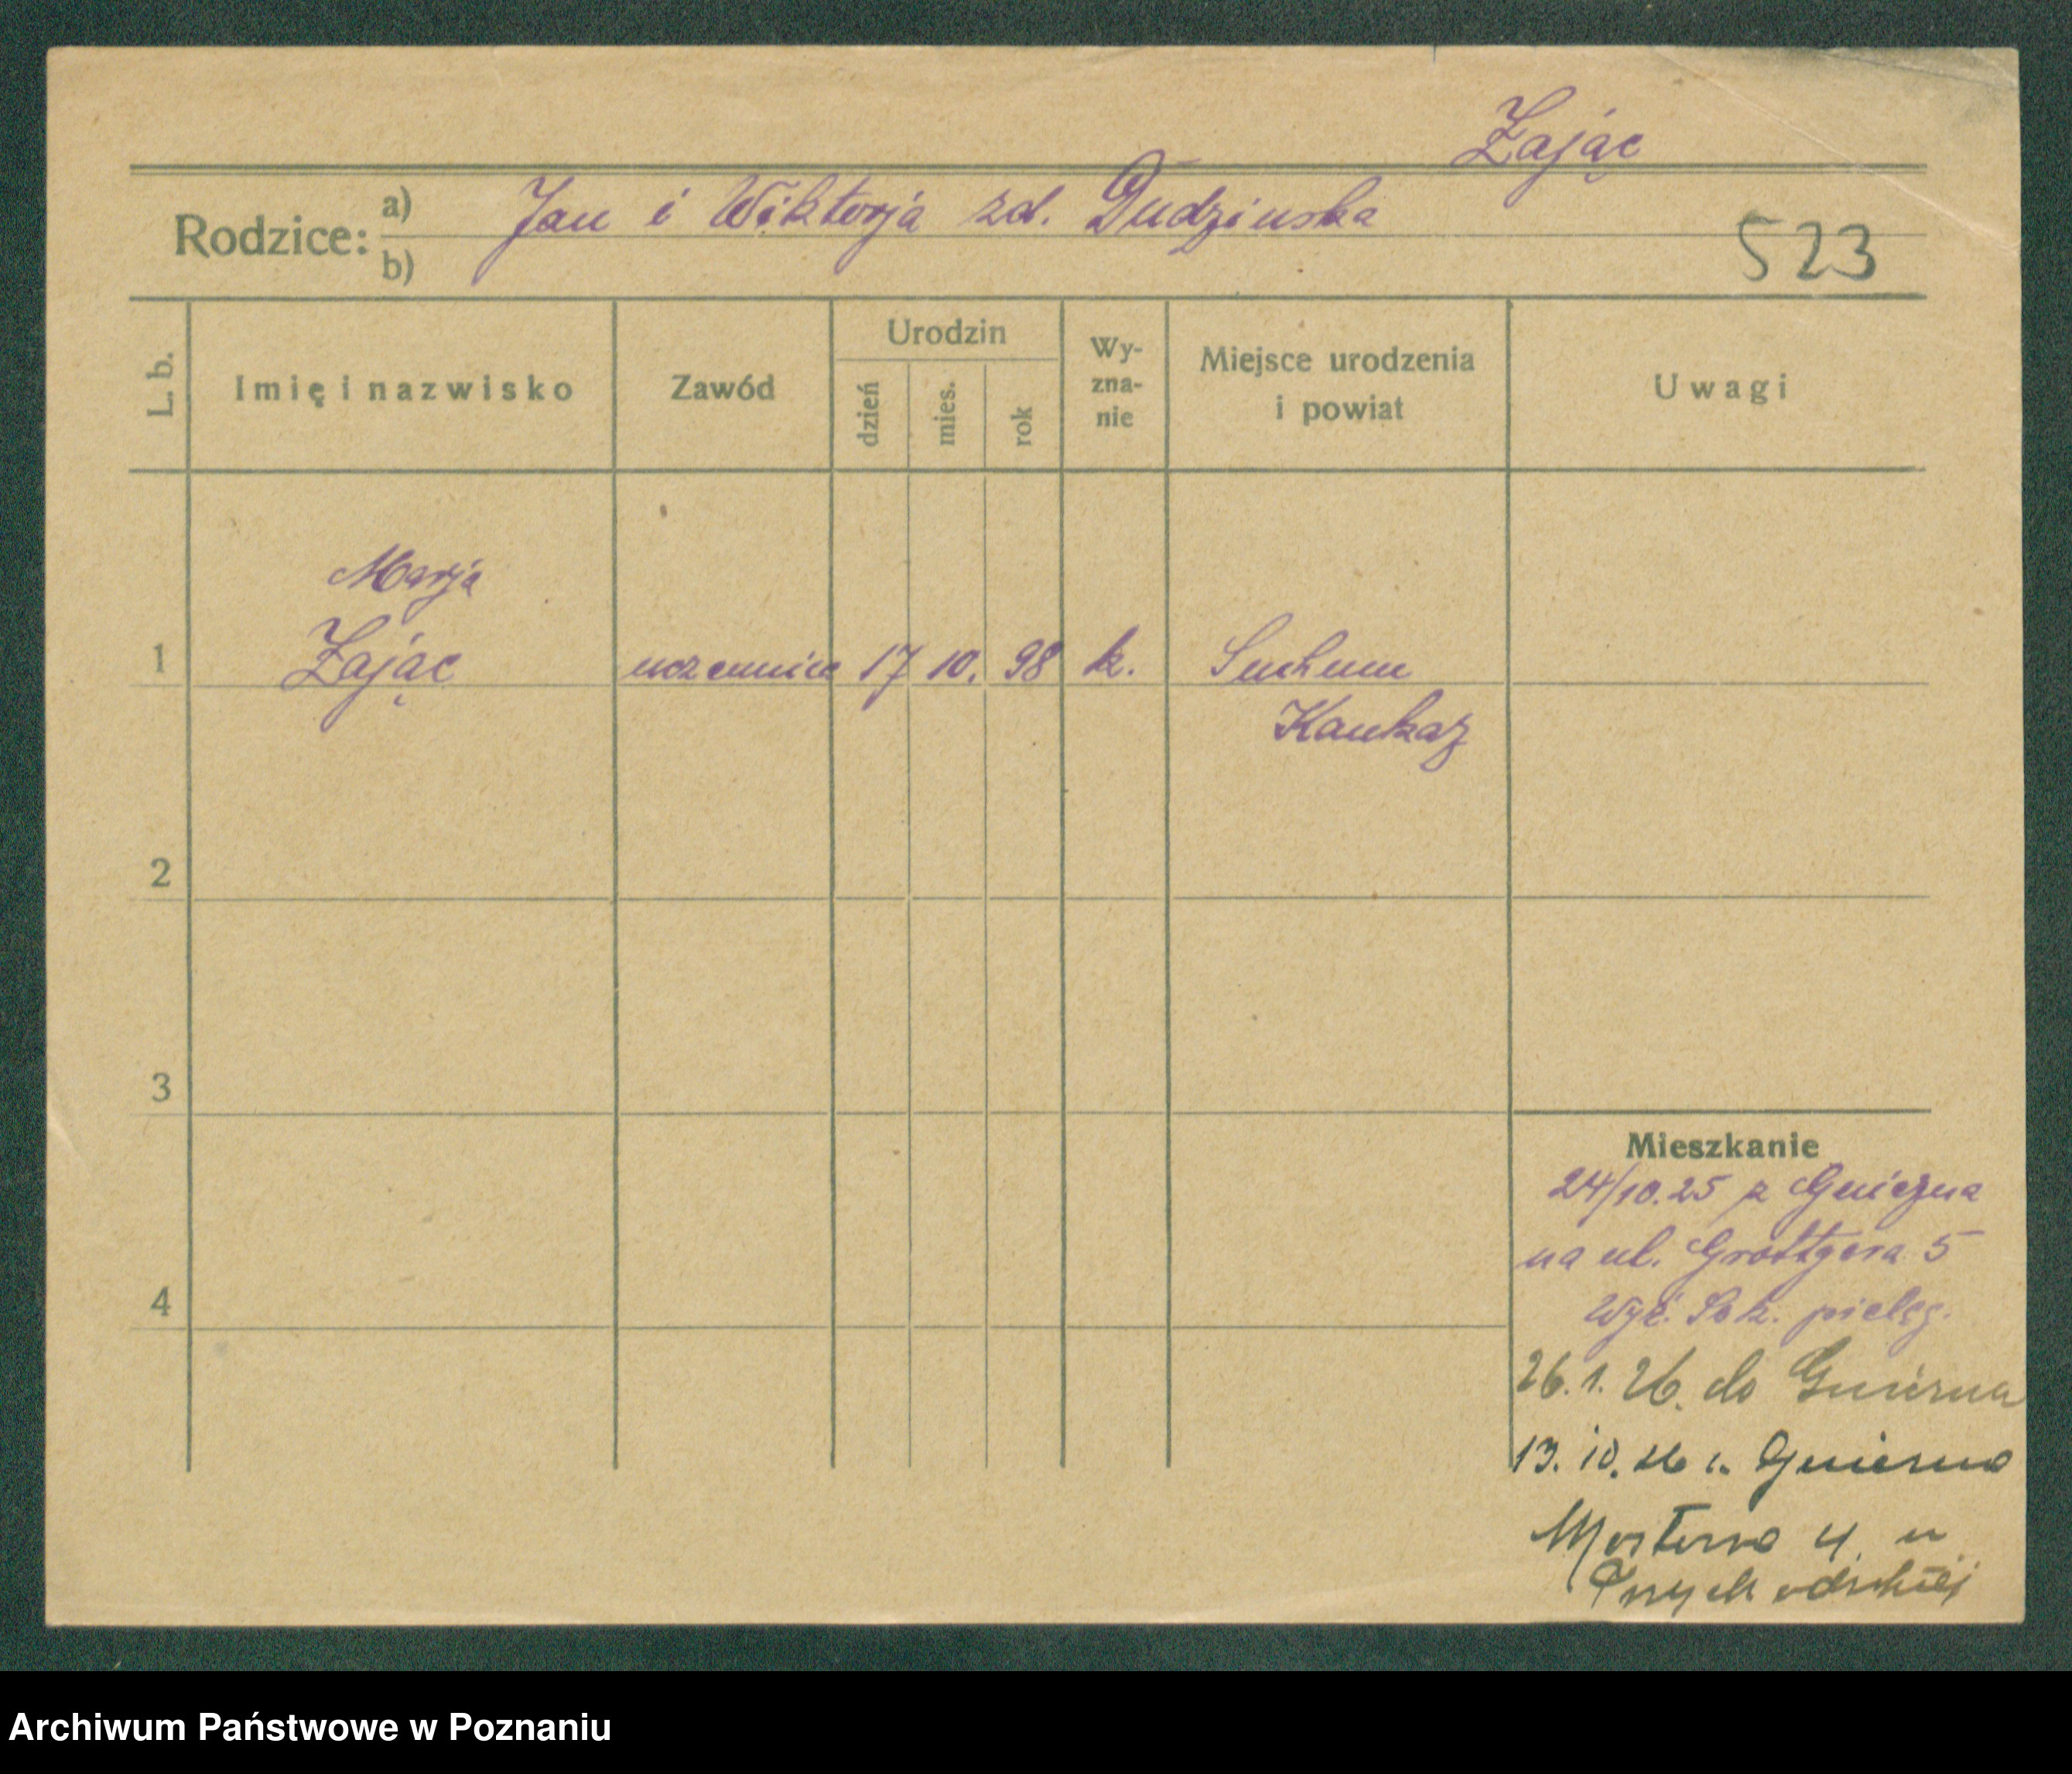 Zając
Rodzice: a) Jan i Wiktorja zd. Dudzinska
b)
523
L. b. Imię i nazwisko Zawód Urodzin dzień mies. rok Wy-zna-nie Miejsce urodzenia i powiat Uwagi
Marja
1 Zając uczennica 17 10. 98 k. Suchum
Kaukaz
2
3
Mieszkanie
24/10.25 z Gniezna
na ul. Grottgera 5
Wyż. Szk. pielęg.
4
26.1.26. do Gniezna
13. 10. 26 z. Gniezna
4 u
Archiwum Państwowe w Poznaniu